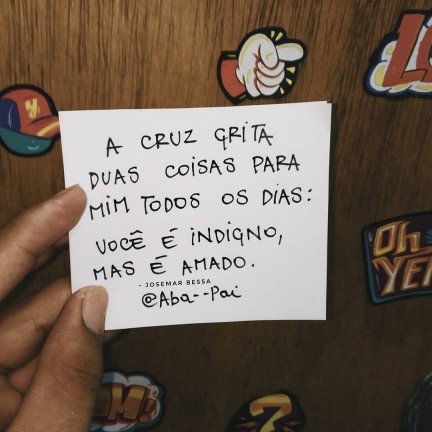 A CRUZ GRITA
DUAS COISAS PARA
MIM TODOS OS DIAS:
VOCÊ É INDIGNO,
MAS É AMADO.
- JOSEMAR BESSA
@Aba--Pai
Oh
YE